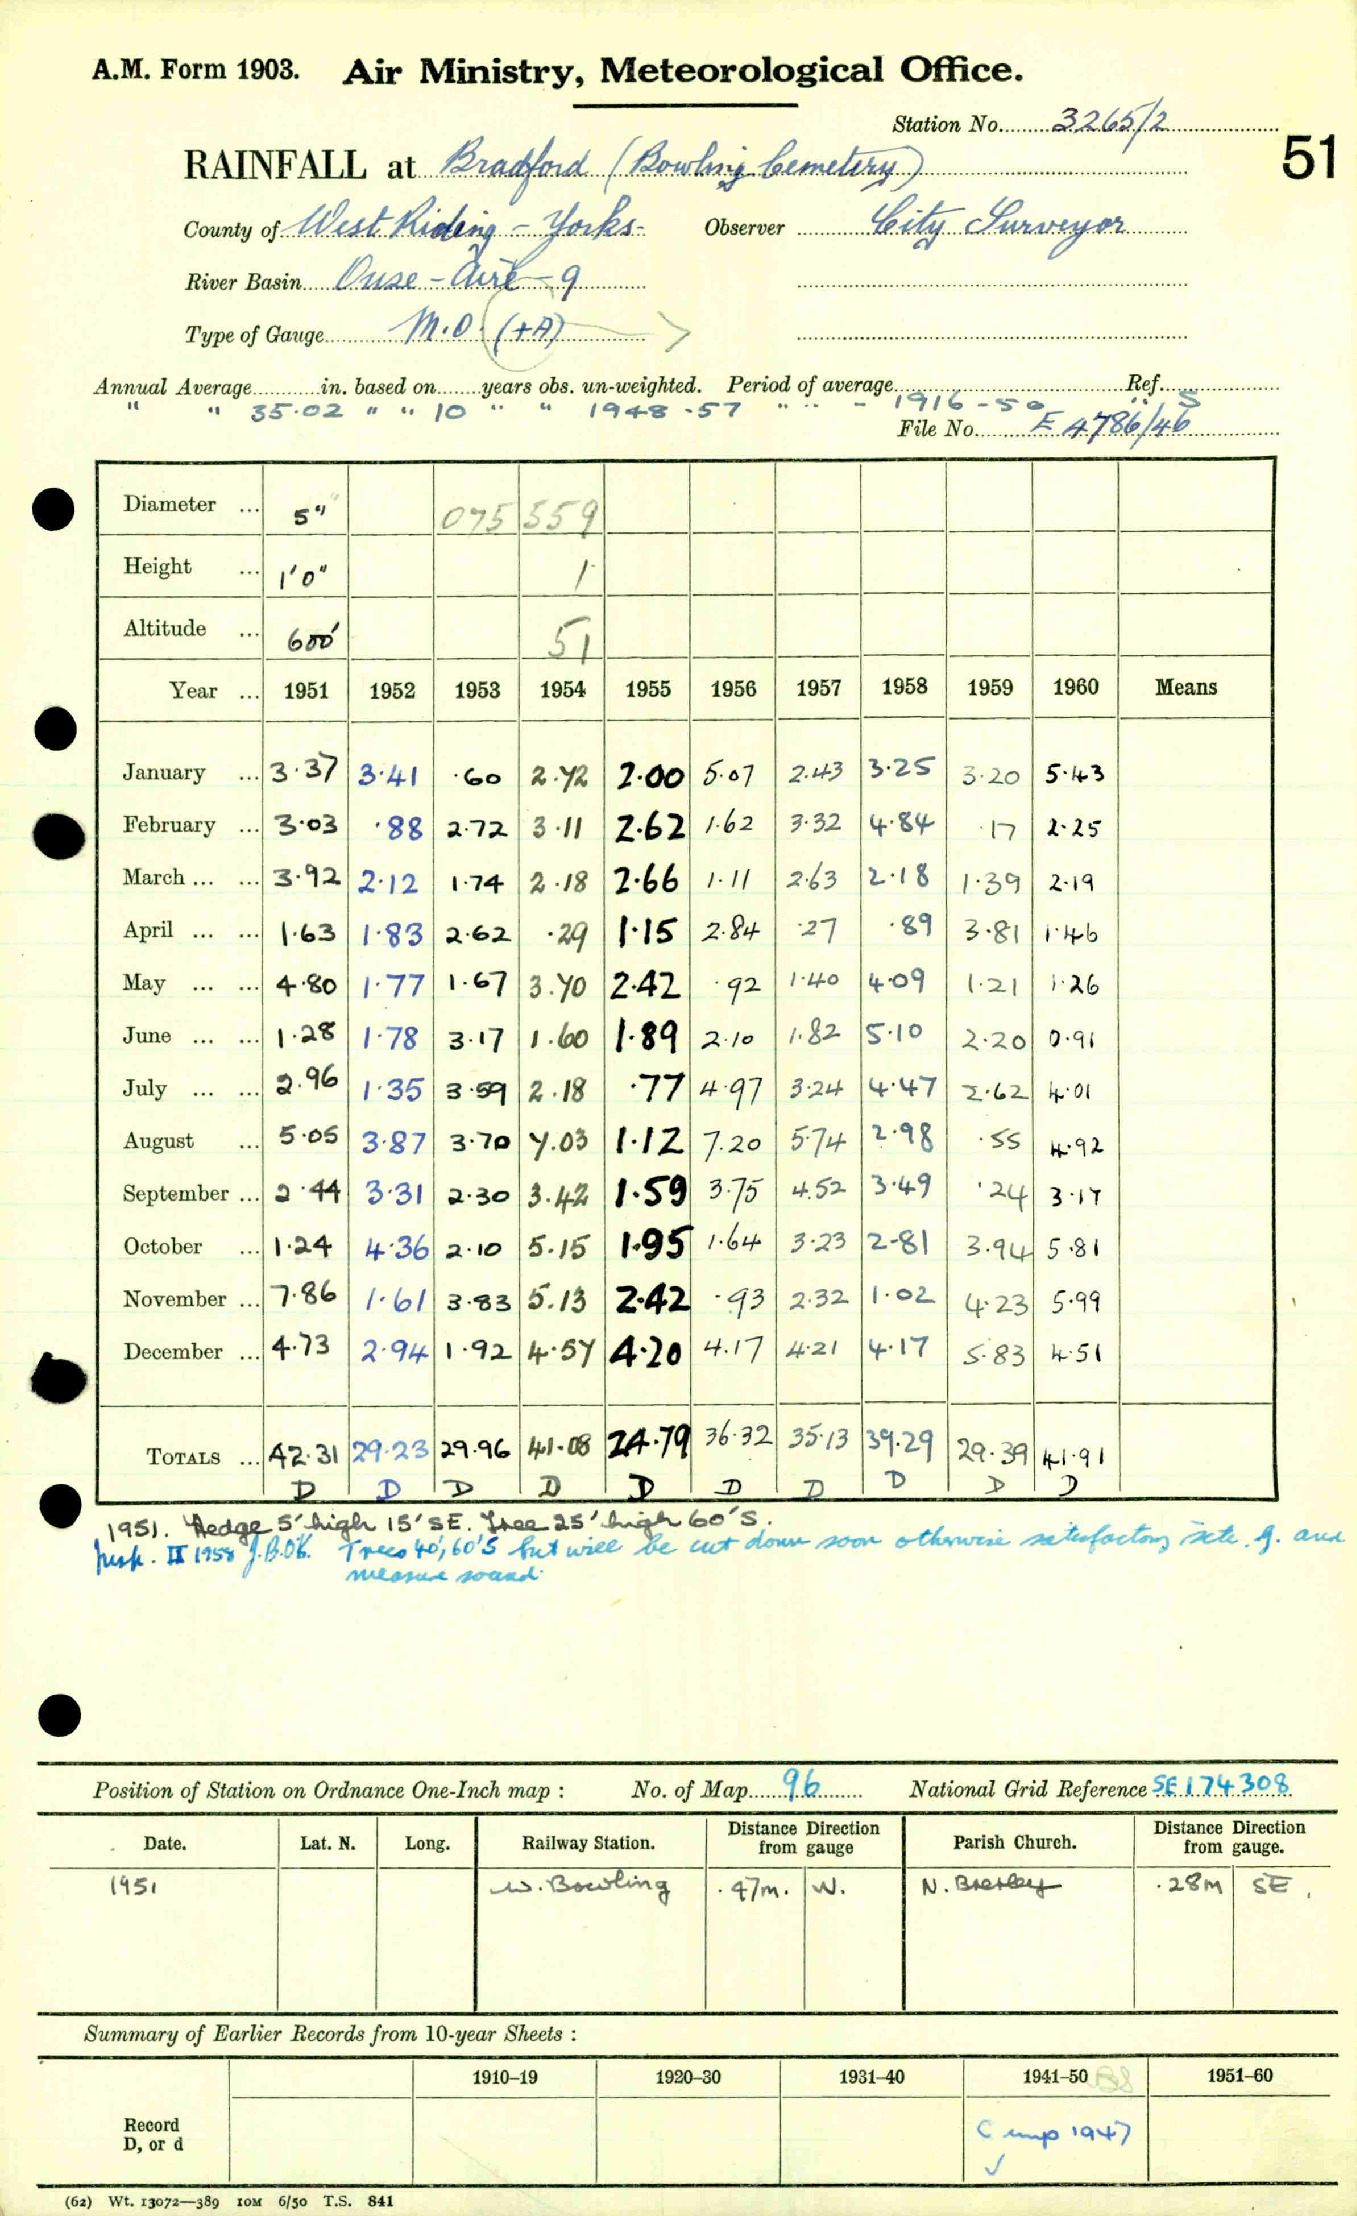 A.M. Form 1903. Air Ministry, Meteorological Office.
Station No. 3265/2
51
RAINFALL at Bradford (Bowling Cemetery)
County of West Riding - Yorks. Observer City Surveyor
River Basin Ouse - Aire - 9
Type of Gauge M.O. (+A)
Annual Average in. based on years obs. un-weighted. Period of average Ref.
" " 35.02 " " 10 " " 1948-57 " " - 1916-50 " S
File No. E 4786/46
Diameter ... 5" 075 559
Height ... 1'0" 1
Altitude ... 600' 51
Year ... 1951 1952 1953 1954 1955 1956 1957 1958 1959 1960 Means
January ... 3.37 3.41 .60 2.72 2.00 5.07 2.43 3.25 3.20 5.43
February ... 3.03 .88 2.72 3.11 2.62 1.62 3.32 4.84 .17 2.25
March ... ... 3.92 2.12 1.74 2.18 2.66 1.11 2.63 2.18 1.39 2.19
April ... ... 1.63 1.83 2.62 .29 1.15 2.84 .27 .89 3.81 1.46
May ... ... 4.80 1.77 1.67 3.70 2.42 .92 1.40 4.09 1.21 1.26
June ... ... 1.28 1.78 3.17 1.60 1.89 2.10 1.82 5.10 2.20 0.91
July ... ... 2.96 1.35 3.59 2.18 .77 4.97 3.24 4.47 2.62 4.01
August ... 5.05 3.87 3.70 7.03 1.12 7.20 5.74 2.98 .55 4.92
September ... 2.44 3.31 2.30 3.42 1.59 3.75 4.52 3.49 .24 3.17
October ... 1.24 4.36 2.10 5.15 1.95 1.64 3.23 2.81 3.94 5.81
November ... 7.86 1.61 3.83 5.13 2.42 .93 2.32 1.02 4.23 5.99
December ... 4.73 2.94 1.92 4.57 4.20 4.17 4.21 4.17 5.83 4.51
TOTALS ... 42.31 29.23 29.96 41.08 24.79 36.32 35.13 39.29 29.39 41.91
D D D D D D D D D D
1951. Hedge 5' high 15' SE. Tree 25' high 60' S.
Insp. II 1958 J.B.O'K. Trees 40', 60'S but will be cut down soon otherwise satisfactory site. g. and
measure sound.
Position of Station on Ordnance One-Inch map : No. of Map 96 National Grid Reference SE 174308
Date. Lat. N. Long. Railway Station. Distance Direction from gauge Parish Church. Distance Direction from gauge.
1951 W. Bowling .47m. W. N. Bierley .28m SE.
Summary of Earlier Records from 10-year Sheets :
1910–19 1920–30 1931–40 1941–50 1951–60
Record
D, or d
C 1947
✓
(62) Wt. 13072—389 10M 6/50 T.S. 841